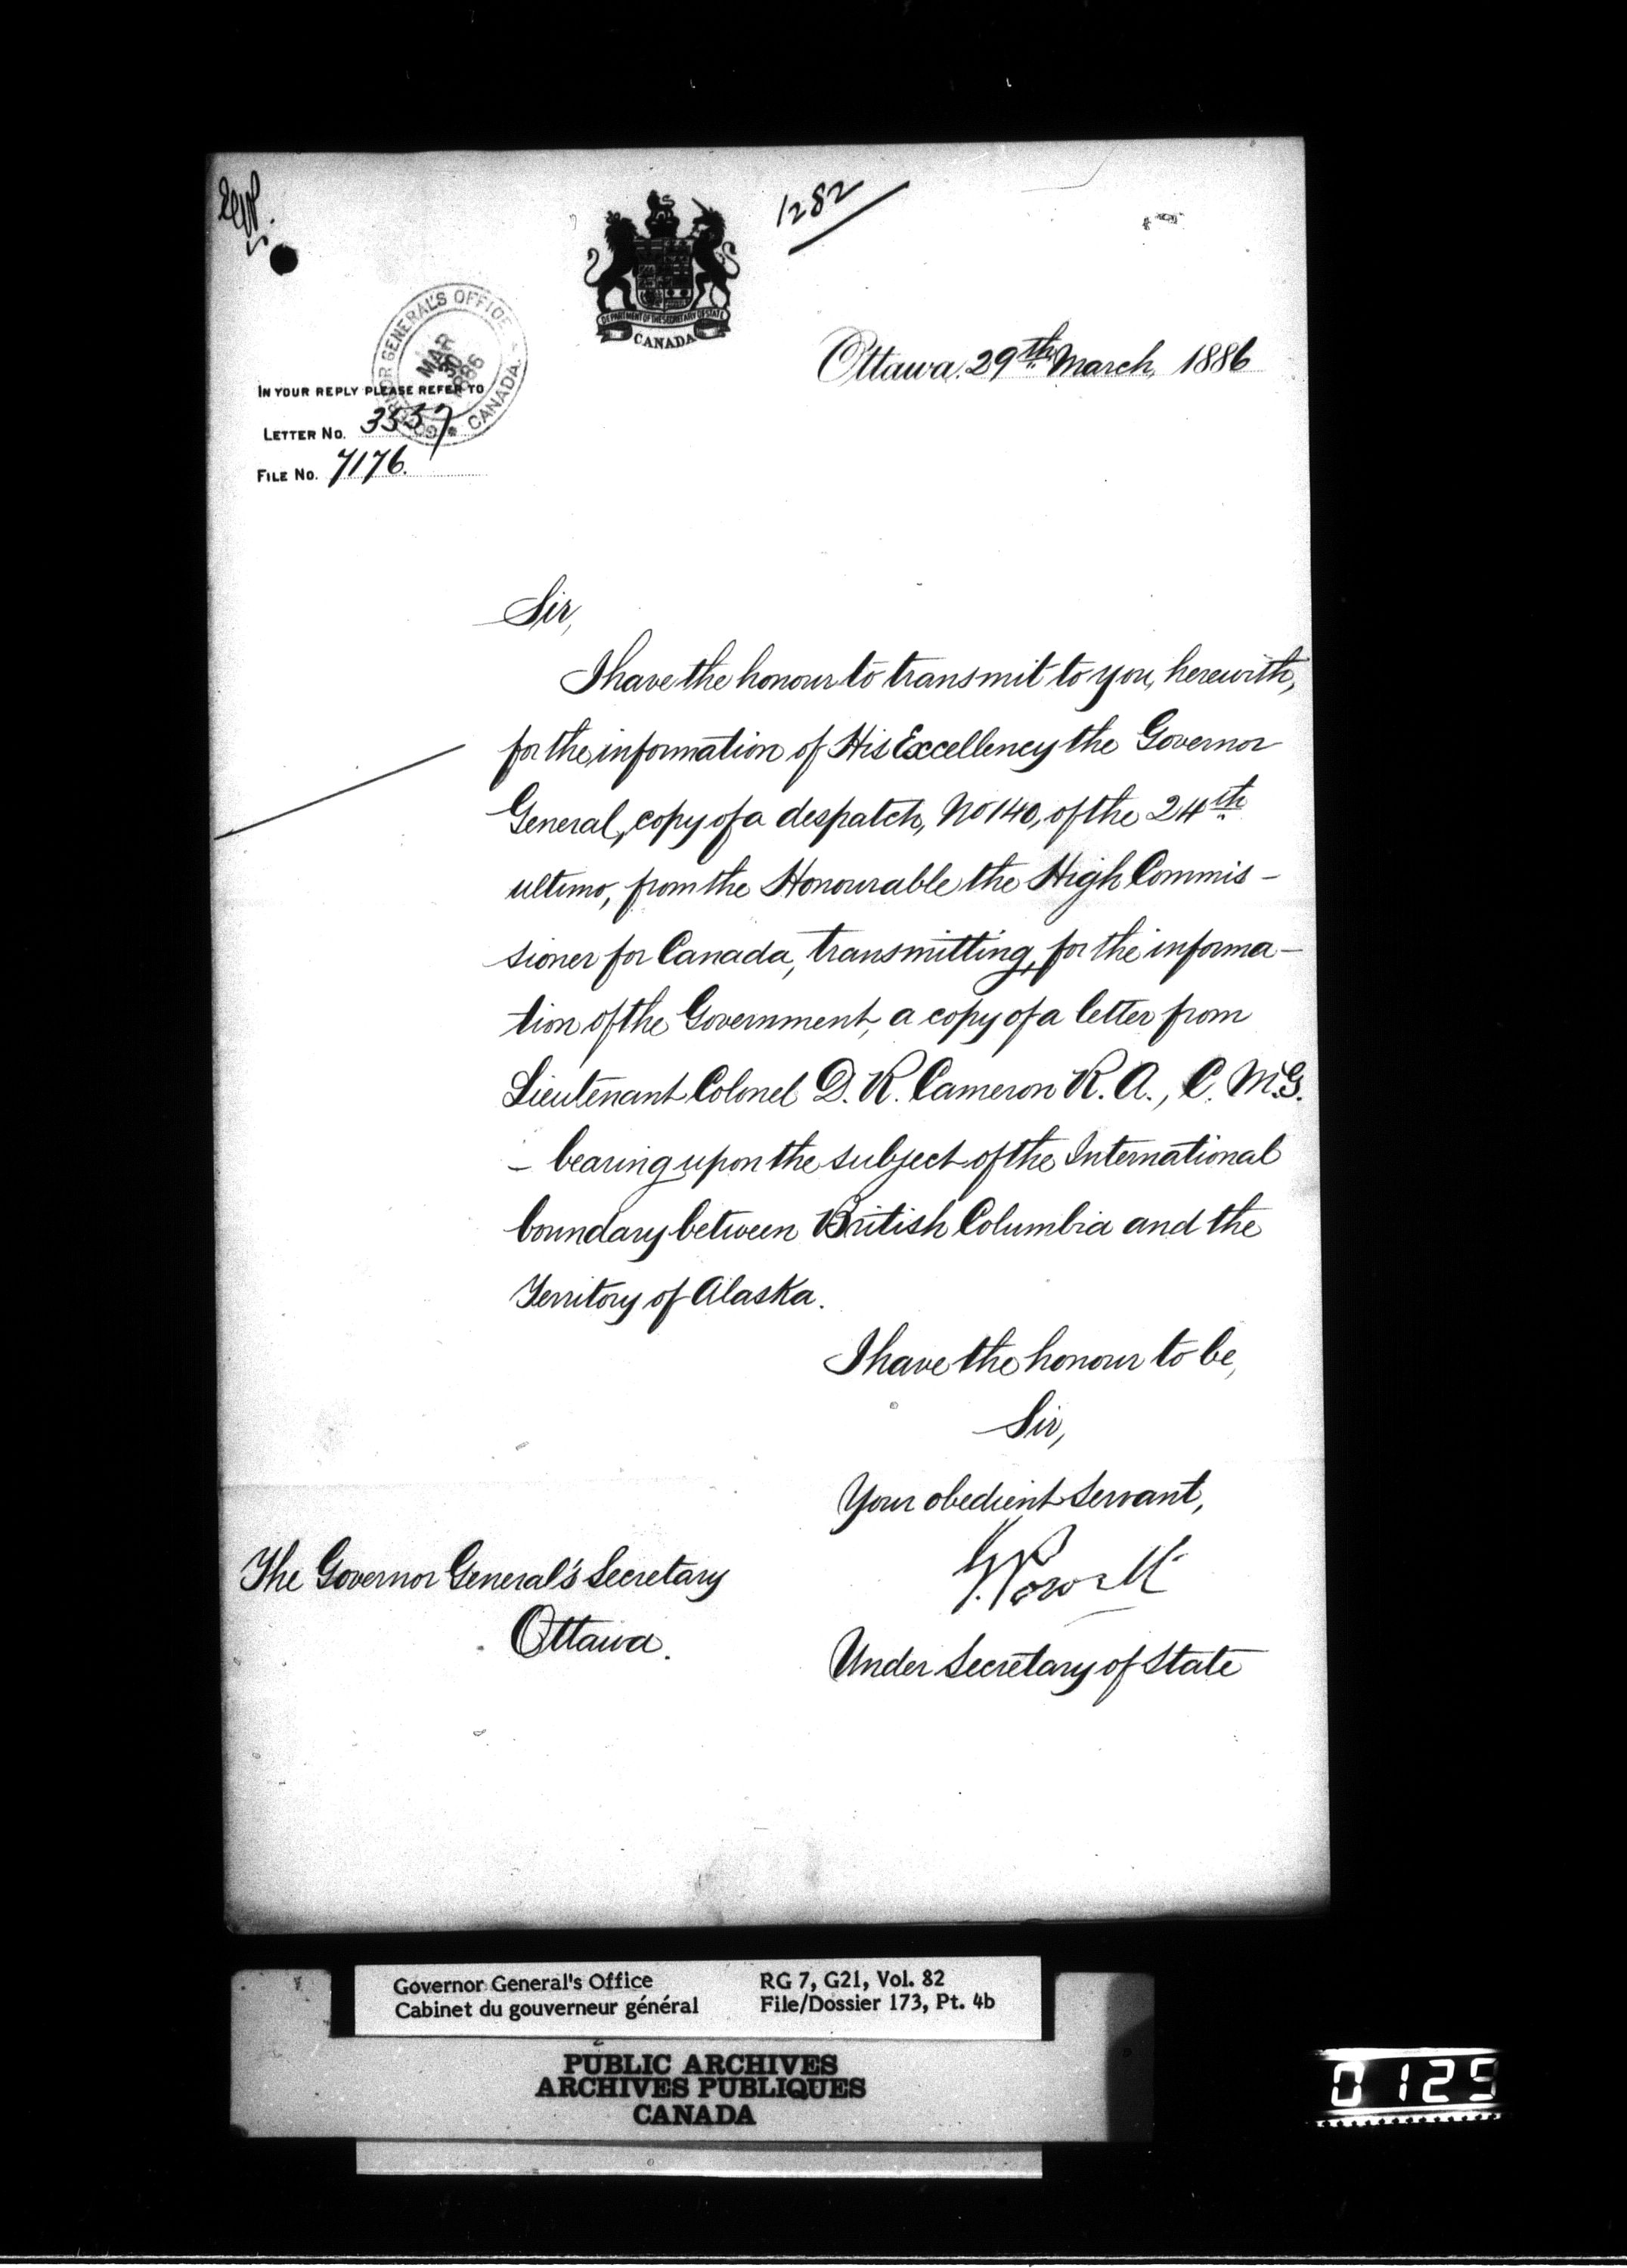 1282
DEPARTMENT OF THE SECRETARY OF STATE
CANADA
GOVERNOR GENERAL'S OFFICE
CANADA.
MAR
30
1886
Ottawa, 29th March, 1886
IN YOUR REPLY PLEASE REFER TO
LETTER NO. 3557
FILE NO. 7176.
Sir,
I have the honour to transmit to you, herewith,
for the information of His Excellency the Governor
General, copy of a despatch, No 140, of the 24th
ultimo, from the Honourable the High Commis-
sioner for Canada, transmitting, for the informa-
tion of the Government, a copy of a letter from
Lieutenant Colonel D. R. Cameron R. A., C. M. G.
- bearing upon the subject of the International
boundary between British Columbia and the
Territory of Alaska.
I have the honour to be,
Sir,
Your obedient Servant,
G. Powell
Under Secretary of State
The Governor General's Secretary
Ottawa.
Governor General's Office
Cabinet du gouverneur général
RG 7, G21, Vol. 82
File/Dossier 173, Pt. 4b
PUBLIC ARCHIVES
ARCHIVES PUBLIQUES
CANADA
0125